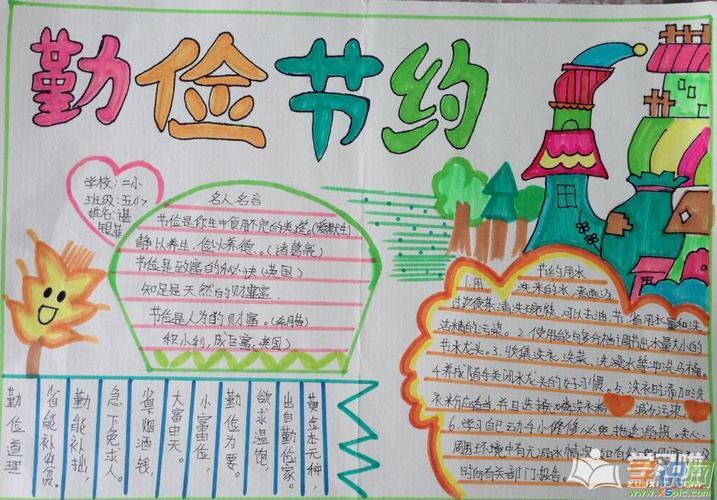 勤俭节约
学校:二小
班级:五(1)
姓名:谌
银菲
名人名言
节俭是你生中食用不完的美筵。(爱默生)
静以养生,俭以养德。(诸葛亮)
节俭是致富的秘诀(英国)
知足是天然的财富
节俭是人为的财富。
积小利,成巨富(英国)
节约用水
1.用洗米的水、煮面汤
过夜茶清洗碗筷,可以去油、节省用水量和洗
洁精的污染。2.使用能够分档调节出水量大小的
节水龙头。3.收集洗衣、洗菜、洗澡水等冲洗马桶。
4.养成随手关闭水龙头的好习惯。5.洗衣时添加洗
衣粉应适当,并且选择无磷洗衣粉减少污染
6.学习自己动手小修修,以免拖延漏损。关心
周围环境中有无漏水情况,如有
时向有关部门报告。
黄金本无种,
出自勤俭家。
欲求温饱,
勤俭为要。
小富由俭,
大富由天。
省烟酒钱,
急下免求人。
勤能补拙,
省能补贫
勤俭道理
www.XSpic.com